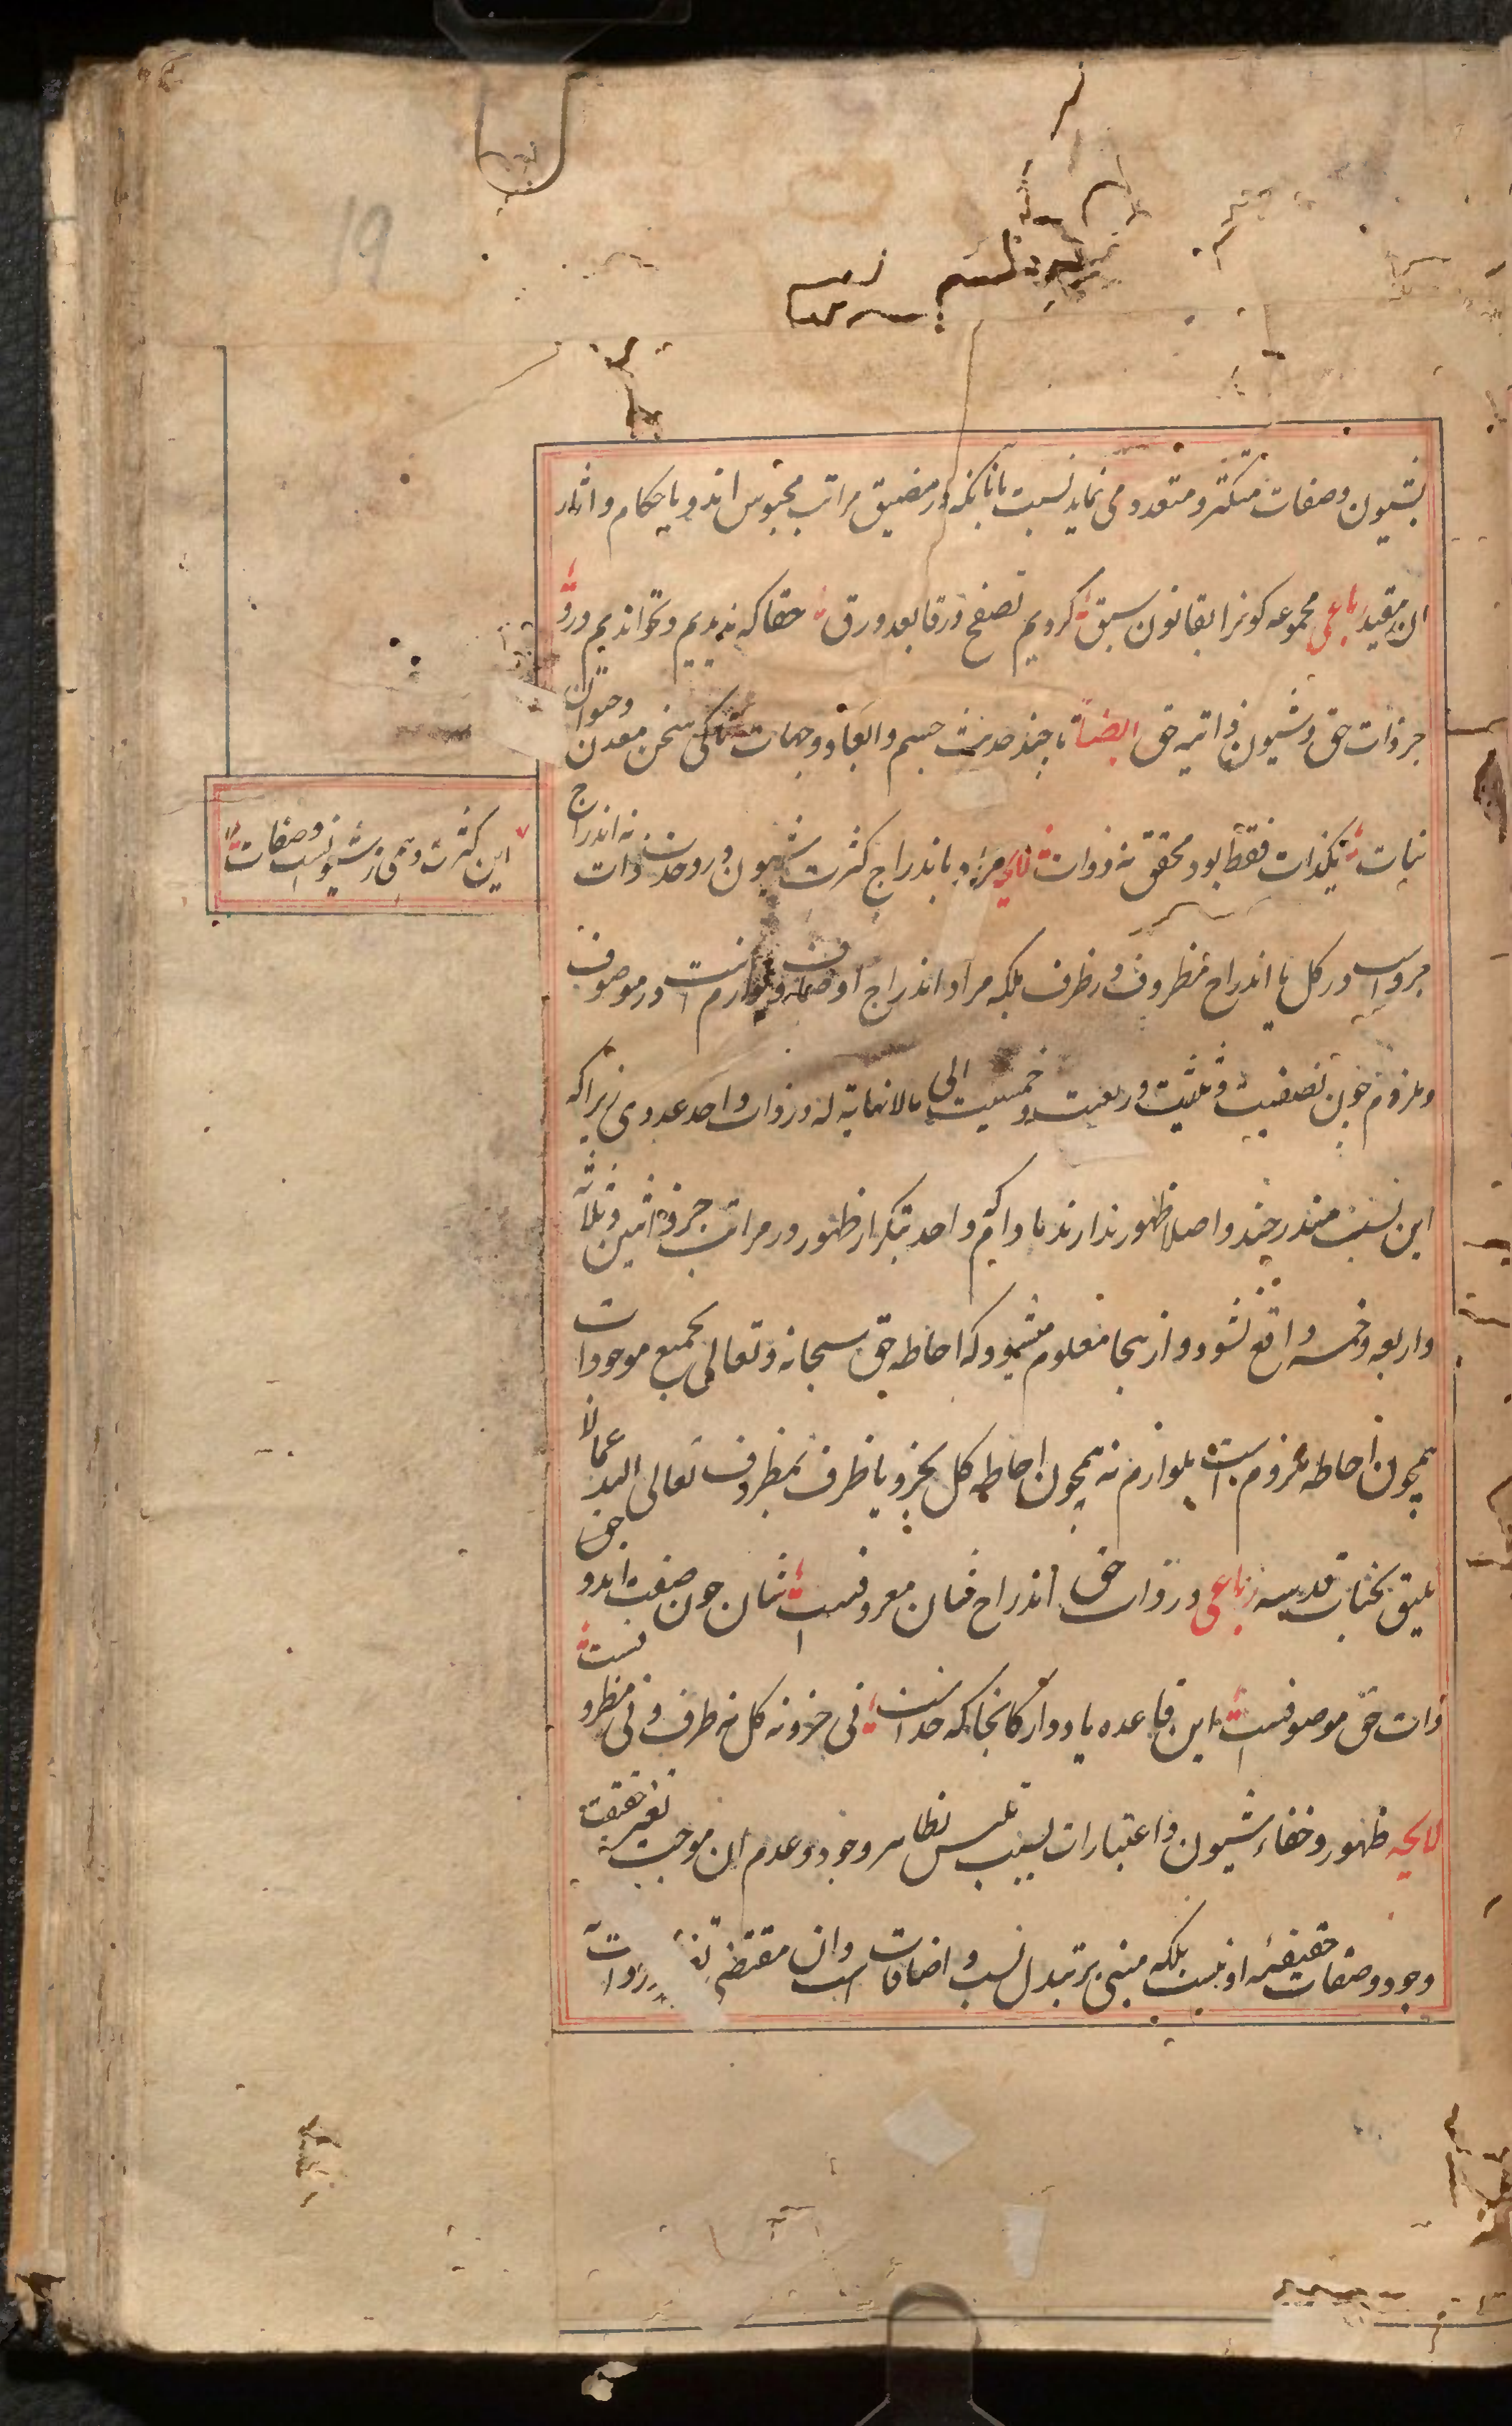 بشیون و صفات متکثر و متعدد می نماید نسبت بانانکه در مضیق مراتب محبوس اند و باحکام و اثار
ان مقید رباعی مجموعه کونرا بقانون سبق کردیم تصفح ورقا بعد ورق حقا که ندیدیم و نخواندیم درو
جز ذات حق و شیون ذاتیه حق ایضاً تا چند حدیث جسم و ابعاد و جهات تا کی سخن معدن و حیوان
نبات یکذات فقط بود محقق نه ذوات لایحه مراد باندراج کثرت شیون در وحدت ذات نه اندراج
جزو است در کل یا اندراج مظروف در ظرف بلکه مراد اندراج اوصاف و لوازم است در موصوف
و ملزوم چون نصفیت و ثلثیت و ربعیت و خمسیت الی مالانهایة له در ذات واحد عددی زیرا که
این نسب مندرجند و اصلا ظهور ندارند مادام که واحد بتکرار ظهور در مراتب جزو اثنین و ثلاثه
و اربعه و خمسه واقع نشود و از ینجا معلوم میشود که احاطه حق سبحانه و تعالی بجمیع موجودات
همچون احاطه ملزوم است بلوازم نه همچون احاطه کل بجزو یا ظرف بمظروف تعالی الله عمالا
یلیق بجناب قدسه رباعی در ذات حق اندراج شان معروفست شان چون صفت اند و
ذات حق موصوفست این قاعده یاد دار کانجا که خداست نی جزو نه کل نه ظرف و نی مظروفست
لایحه ظهور و خفاء شیون و اعتبارات بسبب تلبس بظاهر وجود و عدم ان موجب تغیر حقیقت
وجود و صفات حقیقیه او نیست بلکه مبنی بر تبدل نسب و اضافات است و ان مقتضی تغیر در ذات
این کثرت وهمی ز شیونست و صفات
19